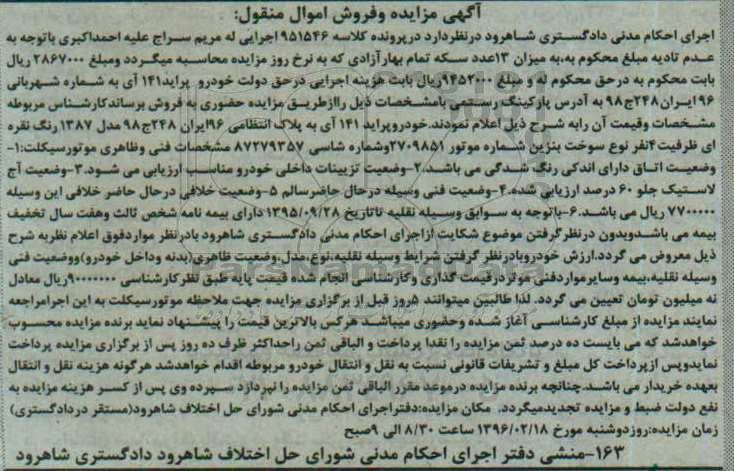 آگهی مزایده وفروش اموال منقول:
اجرای احکام مدنی دادگستری شاهرود درنظردارد درپرونده کلاسه ۹۵۱۵۴۶ اجرایی له مریم سراج علیه احمداکبری باتوجه به
عدم تادیه مبلغ محکوم به،به میزان ۱۳عدد سکه تمام بهارآزادی که به نرخ روز مزایده محاسبه میگردد ومبلغ ۲۸۶۷۰۰۰ ریال
بابت محکوم به درحق محکوم له و مبلغ ۹۴۵۲۰۰۰ریال بابت هزینه اجرایی درحق دولت خودرو پراید۱۴۱ آی به شماره شهربانی
۹۶ایران۲۴۸ج۹۸ به آدرس پارکینگ رستمی بامشخصات ذیل راازطریق مزایده حضوری به فروش برساندکارشناس مربوطه
مشخصات وقیمت آن رابه شرح ذیل اعلام نمودند.خودروپراید ۱۴۱ آی به پلاک انتظامی ۹۶ایران ۲۴۸ج۹۸ مدل ۱۳۸۷ رنگ نقره
ای ظرفیت۴نفر نوع سوخت بنزین شماره موتور ۲۷۰۹۸۵۱وشماره شاسی ۸۷۲۷۹۳۵۷ مشخصات فنی وظاهری موتورسیکلت:۱-
وضعیت اتاق دارای اندکی رنگ شدگی می باشد.۲-وضعیت تزیینات داخلی خودرو مناسب ارزیابی می شود.۳-وضعیت آج
لاستیک جلو ۶۰ درصد ارزیابی شده.۴-وضعیت فنی وسیله درحال حاضرسالم ۵-وضعیت خلافی درحال حاضر خلافی این وسیله
۷۷۰۰۰۰۰ ریال می باشد.۶-باتوجه به سوابق وسیله نقلیه تاتاریخ ۱۳۹۵/۰۹/۲۸ دارای بیمه نامه شخص ثالث وهفت سال تخفیف
بیمه می باشدوبدون درنظرگرفتن موضوع شکایت ازاجرای احکام مدنی دادگستری شاهرود بادرنظر مواردفوق اعلام نظربه شرح
ذیل معروض می گردد.ارزش خودروبادرنظر گرفتن شرایط وسیله نقلیه،نوع،مدل،وضعیت ظاهری(بدنه وداخل خودرو)ووضعیت فنی
وسیله نقلیه،بیمه وسایرمواردفنی موثردرقیمت گذاری وکارشناسی انجام شده قیمت پایه طبق نظرکارشناسی ۹۰۰۰۰۰۰۰ریال معادل
نه میلیون تومان تعیین می گردد. لذا طالبین میتوانند ۵روز قبل از برگزاری مزایده جهت ملاحظه موتورسیکلت به این اجرامراجعه
نمایند مزایده از مبلغ کارشناسی آغاز شده وحضوری میباشد هرکس بالاترین قیمت را پیشنهاد نماید برنده مزایده محسوب
خواهدشد که می بایست ده درصد ثمن مزایده را نقدا پرداخت و الباقی ثمن راحداکثر ظرف ده روز پس از برگزاری مزایده پرداخت
نمایدوپس ازپرداخت کل مبلغ و تشریفات قانونی نسبت به نقل و انتقال خودرو مربوطه اقدام خواهدشد هرگونه هزینه نقل و انتقال
بعهده خریدار می باشد.چنانچه برنده مزایده درموعد مقرر الباقی ثمن مزایده را نپردازد سپرده وی پس از کسر هزینه مزایده به
نفع دولت ضبط و مزایده تجدیدمیگردد. مکان مزایده:دفتراجرای احکام مدنی شورای حل اختلاف شاهرود(مستقر دردادگستری)
زمان مزایده:روزدوشنبه مورخ ۱۳۹۶/۰۲/۱۸ ساعت ۸/۳۰ الی ۹صبح
۱۶۳-منشی دفتر اجرای احکام مدنی شورای حل اختلاف شاهرود دادگستری شاهرود